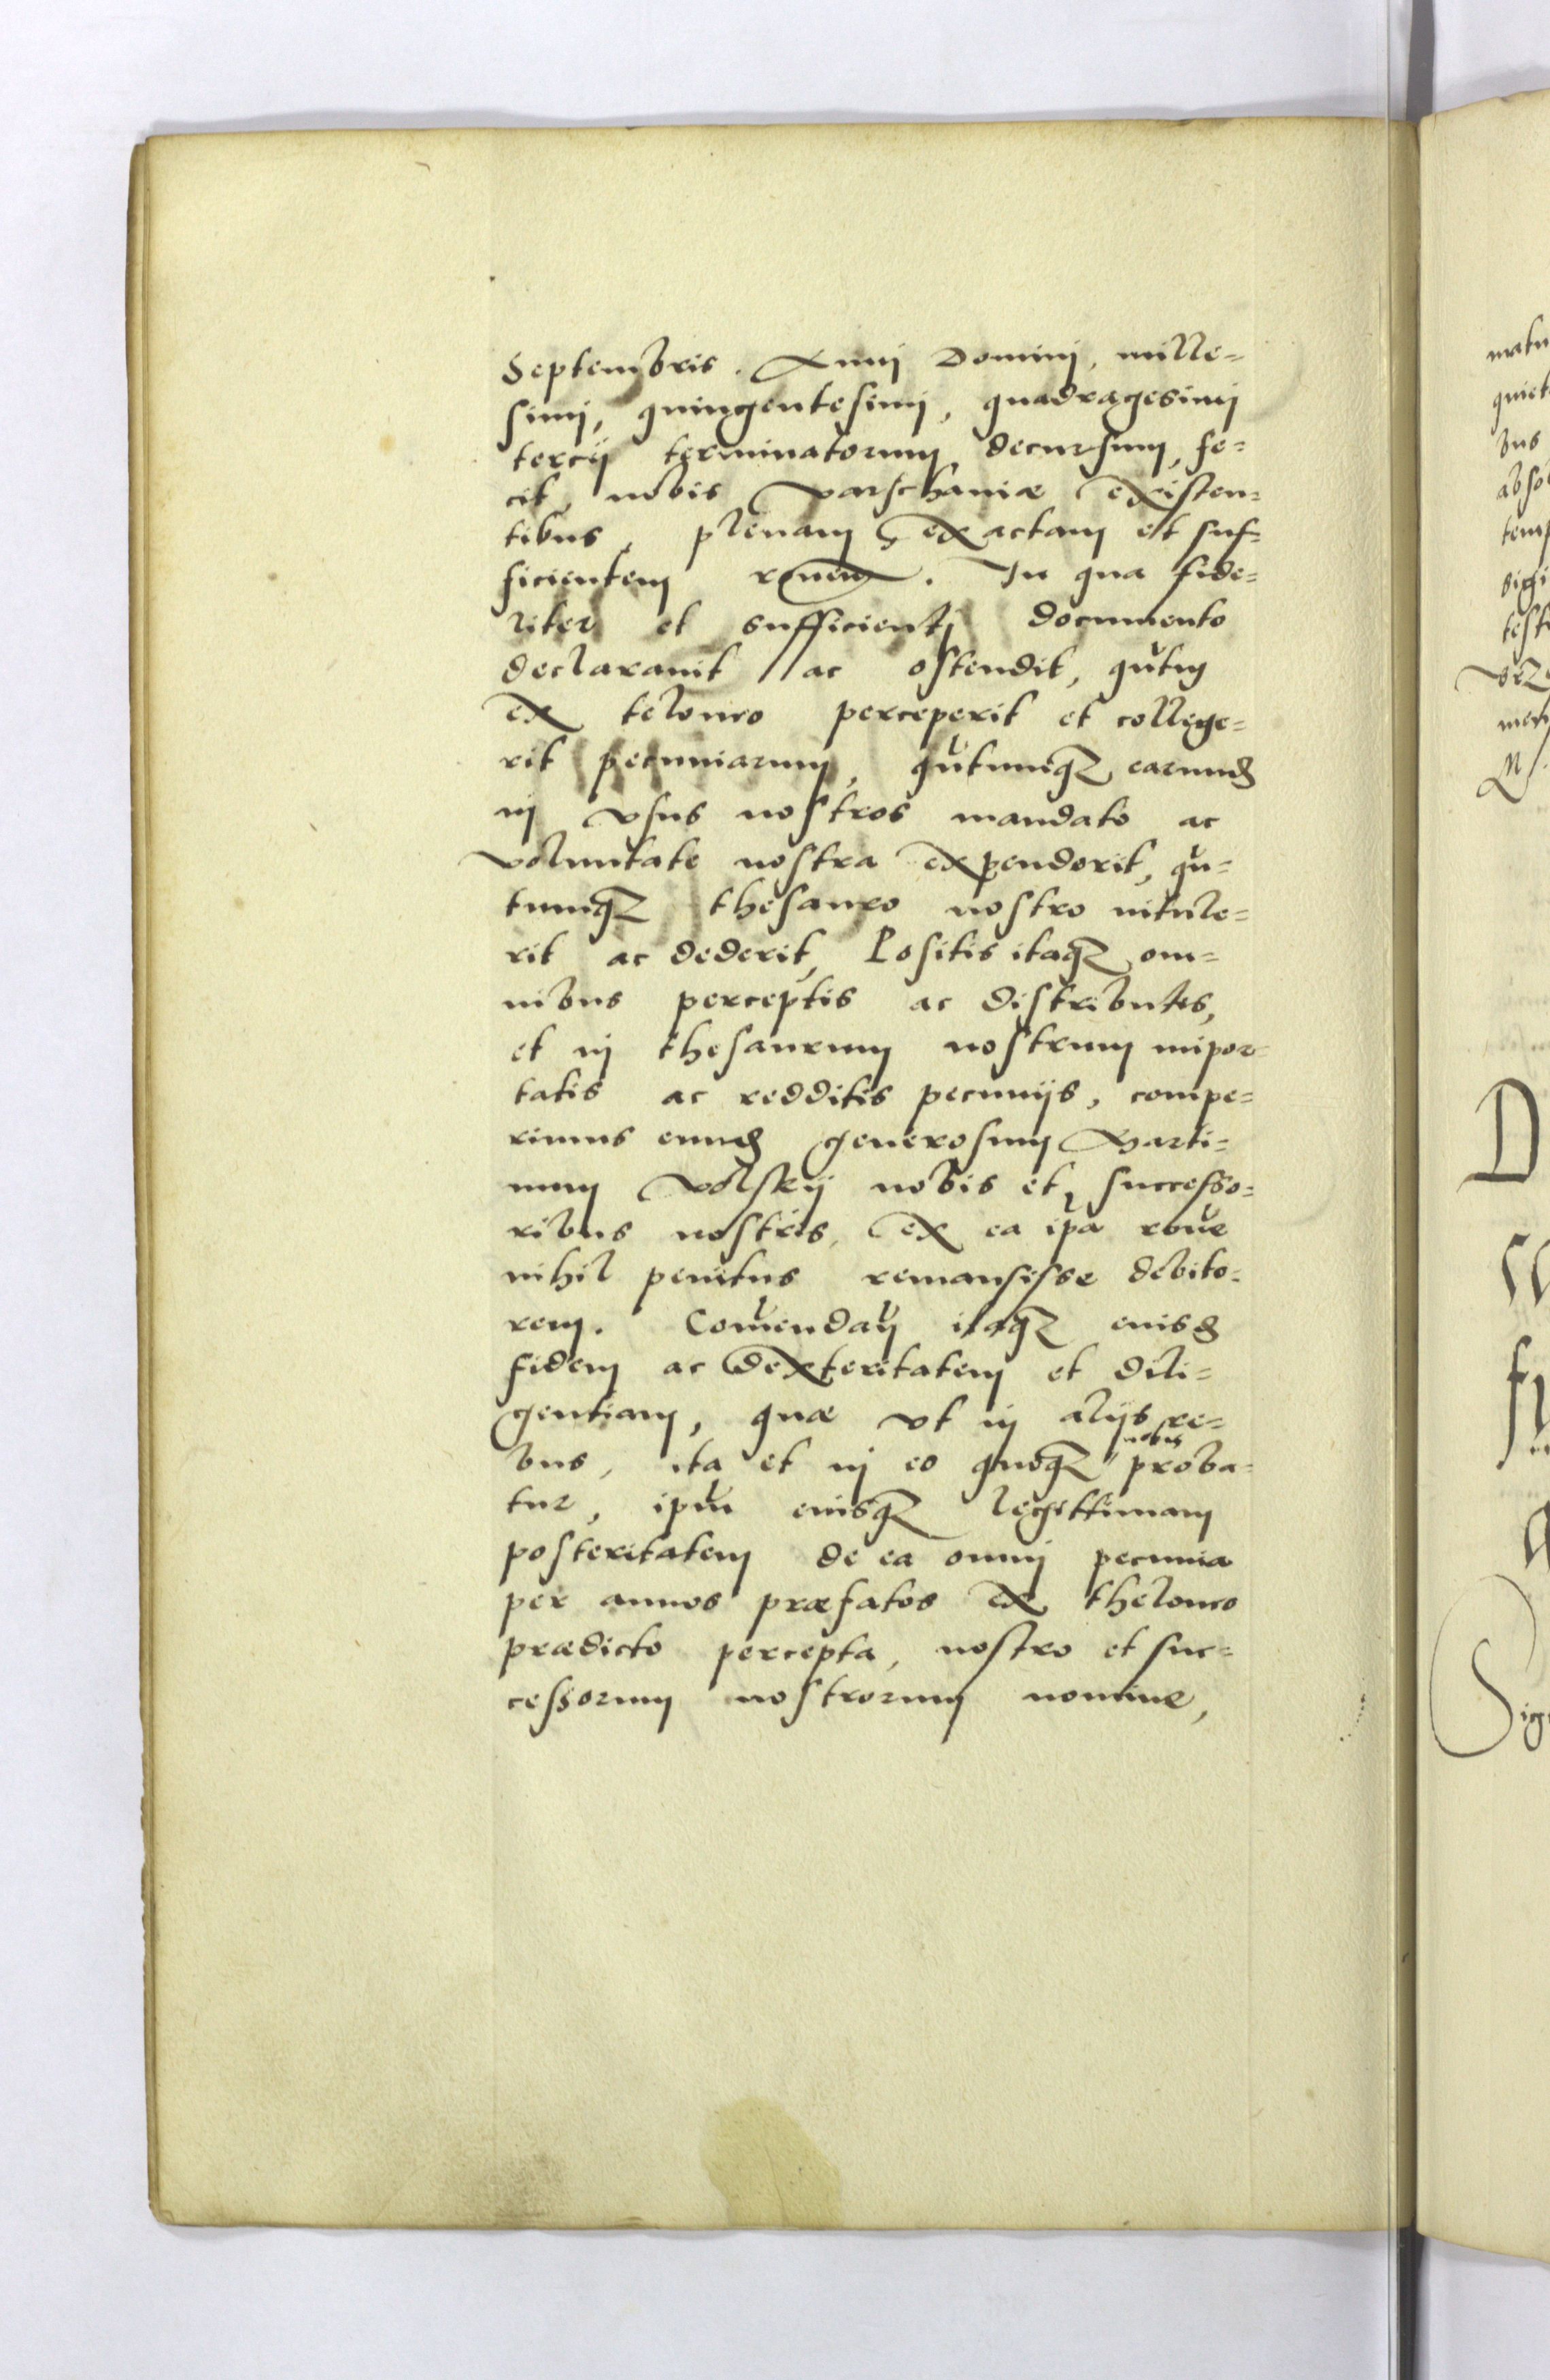 Septembris. Anni Domini, mille=
simi, quingentesimi, quadragesimi
tercij terminatorum decursum, fe=
cit, nobis Varschaniæ existen=
tibus, plenam exactam et suf=
ficientem ronem. In qua fide=
liter et sufficienti documento
declarauit ac ostendit, qutum
ex teloneo perceperit et college=
rit pecuniarum, qutumq₃ earund
in vsus nostros mandato ac
voluntate nostra expenderit, qu=
tumq₃ thesauro nostro intule=
rit ac dederit, Positis itaq₃ om=
nibus perceptis ac distributis,
et in thesaurum nostrum impor=
tatis ac redditis pecunijs, compe=
rimus eund generosum Marti=
num Volskij nobis et successo=
ribus nostris, ex ea ipa rone
nihil penitus remansisse debito=
rem. Comendan itaq₃ euisd
fidem ac dexteritatem et dili=
gentiam, quæ vt in alijs re=
bus, ita et in eo quoq₃ nobis proba=
tur, ipm euisq₃ legittimam
posteritatem de ea omni pecunia
per annos præfatos ex theloneo
prædicto percepta, nostro et suc=
cessorum nostrorum nomine,